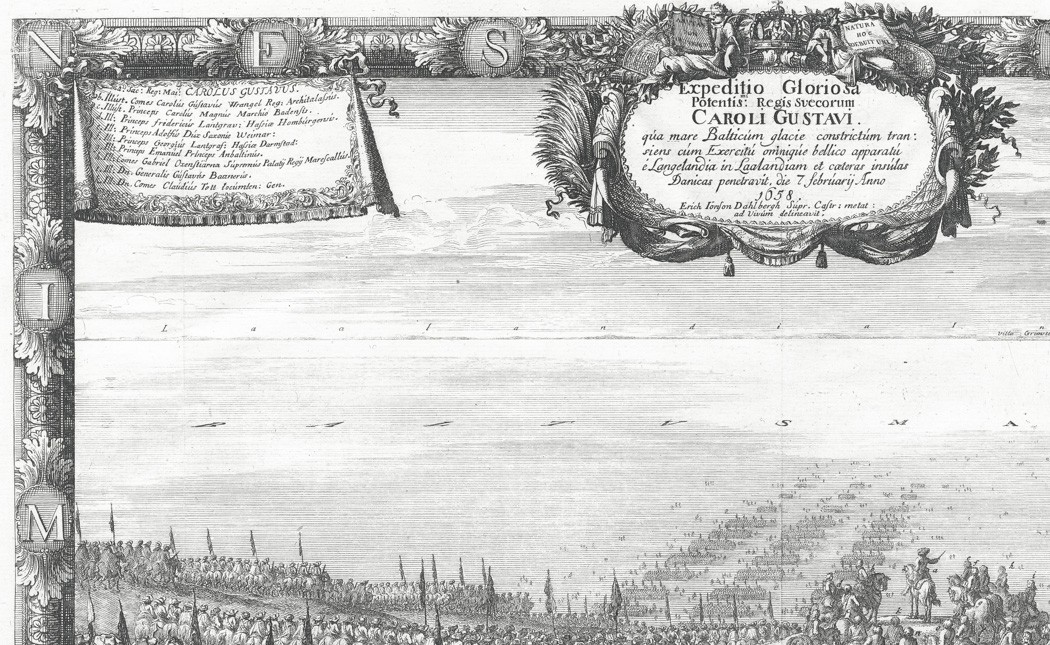 N E S
NATURA
HOC
DEBUIT UNI
Sa: Sac: Reg: Mai: CAROLUS GUSTAVUS.
Illust. Comes Carolus Gustavus Wrangel Reg: Architalassus.
Illust. Princeps Carolus Magnus Marchio Badensis
Ill: Princeps Fridericus Lantgrav: Hassiæ Hombürgensis.
Ill: Princeps Adolfus Dux Saxoniæ Weimar:
Ill: Princeps Georgius Lantgraf: Hassiæ Darmstad:
Ill: Princeps Emanuel Princeps Anhaltinus.
Ill: Comes Gabriel Oxenstiarna Supremus Palatij Regij Marescallus.
Ill: Dn: Generalis Gustavus Banerus.
Ill: Dn. Comes Claudius Tott locumten: Gen.
Expeditio Gloriosa
Potentis: Regis Svecorum
CAROLI GUSTAVI.
qua mare Balticum glacie constrictum tran:
siens cum Exercitu omnique bellico apparatu
è Langelandia in Laalandiam et cæteras insulas
Danicas penetravit, die 7 februarij Anno
1658.
Erich Ionson Dahlbergh Supr. Castr: metat:
ad vivum delineavit.
I
L a a l a n d i a
Villa Grimsted
M